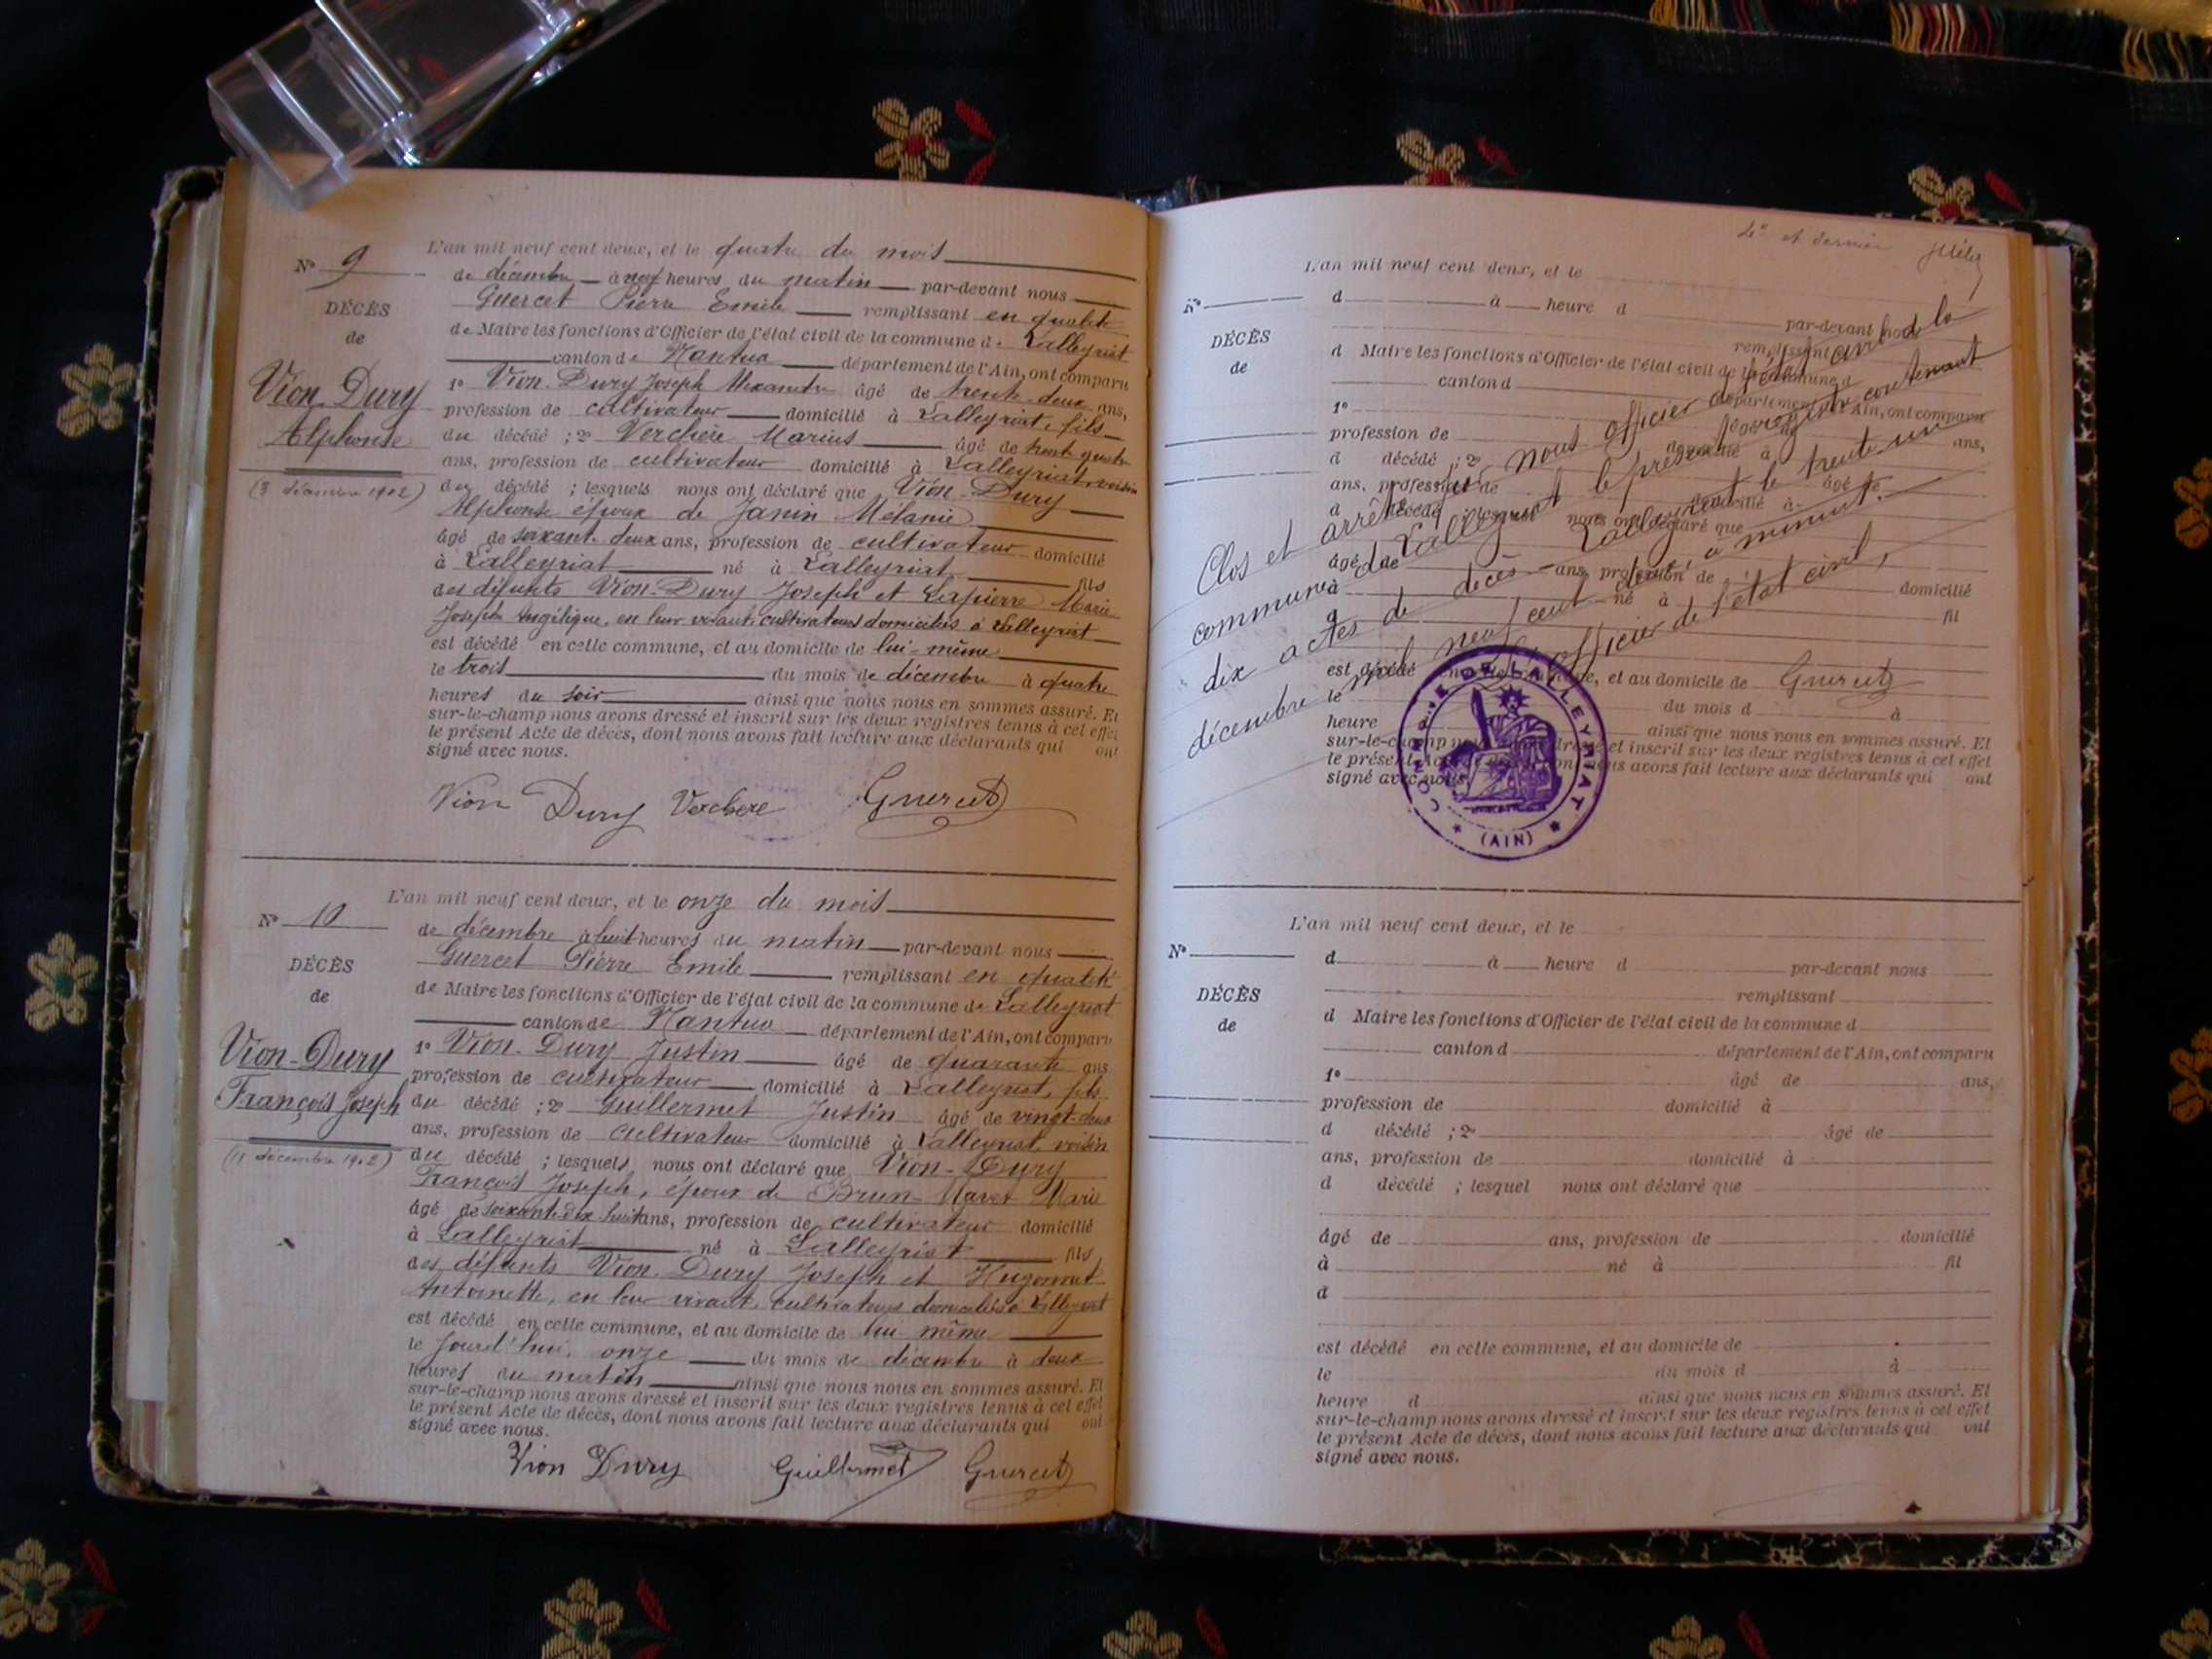 L'an mil neuf cent deux, et le quatre du mois
N° 9
de décembre à neuf heures du matin par-devant nous
Guercet Pierre Emile remplissant en qualité
DÉCÈS
de
de Maire les fonctions d'Officier de l'état civil de la commune de Lalleyriat
canton de Nantua département de l'Ain, ont comparu
Vion-Dury
Alphonse
(3 décembre 1902)
1° Vion-Dury Joseph Alexandre âgé de trente-deux ans,
profession de cultivateur domicilié à Lalleyriat, fils
du décédé ; 2° Verchère Marius âgé de trente quatre
ans, profession de cultivateur domicilié à Lalleyriat, voisin
du décédé ; lesquels nous ont déclaré que Vion-Dury
Alphonse époux de Janin Mélanie
âgé de soixante deux ans, profession de cultivateur domicilié
à Lalleyriat né à Lalleyriat fils
des défunts Vion-Dury Joseph et Lapierre Marie
Joseph Angélique, en leur vivant, cultivateurs domiciliés à Lalleyriat
est décédé en cette commune, et au domicile de lui-même
le trois du mois de décembre à quatre
heures du soir ainsi que nous nous en sommes assuré. Et
sur-le-champ nous avons dressé et inscrit sur les deux registres tenus à cet effet
le présent Acte de décès, dont nous avons fait lecture aux déclarants qui ont
signé avec nous.
Vion Dury Verchere Guercet
L'an mil neuf cent deux, et le onze du mois
N° 10
de décembre à huit heures du matin par-devant nous
Guercet Pierre Emile remplissant en qualité
DÉCÈS
de
de Maire les fonctions d'Officier de l'état civil de la commune de Lalleyriat
canton de Nantua département de l'Ain, ont comparu
Vion-Dury
François Joseph
(11 décembre 1902)
1° Vion-Dury Justin âgé de quarante ans
profession de cultivateur domicilié à Lalleyriat, fils
du décédé ; 2° Guillermet Justin âgé de vingt-deux
ans, profession de cultivateur domicilié à Lalleyriat, voisin
du décédé ; lesquels nous ont déclaré que Vion-Dury
François Joseph, époux de Brun- Marie
âgé de soixante dix huit ans, profession de cultivateur domicilié
à Lalleyriat né à Lalleyriat fils
des défunts Vion-Dury Joseph et Hugonnet
Antoinette, en leur vivant, cultivateurs domiciliés à Lalleyriat
est décédé en cette commune, et au domicile de lui même
le jourd'hui, onze du mois de décembre à deux
heures du matin ainsi que nous nous en sommes assuré. Et
sur-le-champ nous avons dressé et inscrit sur les deux registres tenus à cet effet
le présent Acte de décès, dont nous avons fait lecture aux déclarants qui ont
signé avec nous.
Vion Dury Guillermet Guercet
et dernier
L'an mil neuf cent deux, et le
N°
d à heure d par-devant nous
remplissant
DÉCÈS
de
d Maire les fonctions d'Officier de l'état civil de la commune d
canton d département de l'Ain, ont comparu
1° âgé de ans,
profession de domicilié à
d décédé ; 2° âgé de
ans, profession de domicilié à
d décédé ; lesquel nous ont déclaré que
âgé de ans, profession de domicilié
à né à fil
d
est décédé en cette commune, et au domicile de
le du mois d à
heure ainsi que nous nous en sommes assuré. Et
sur-le-champ nous avons dressé et inscrit sur les deux registres tenus à cet effet
le présent Acte de décès, dont nous avons fait lecture aux déclarants qui ont
signé avec nous.
Clos et arrêté par nous officier de l'état civil de la
commune de Lalleyriat le présent registre contenant
dix actes de décès - Lalleyriat le trente un
décembre mil neuf cent deux, à minuit.
L'officier de l'état civil,
Guercet
COMMUNE DE LALLEYRIAT
(AIN)
L'an mil neuf cent deux, et le
N°
d à heure d par-devant nous
remplissant
DÉCÈS
de
d Maire les fonctions d'Officier de l'état civil de la commune d
canton d département de l'Ain, ont comparu
1° âgé de ans,
profession de domicilié à
d décédé ; 2° âgé de
ans, profession de domicilié à
d décédé ; lesquel nous ont déclaré que
âgé de ans, profession de domicilié
à né à fil
d
est décédé en cette commune, et au domicile de
le du mois d à
heure d ainsi que nous nous en sommes assuré. Et
sur-le-champ nous avons dressé et inscrit sur les deux registres tenus à cet effet
le présent Acte de décès, dont nous avons fait lecture aux déclarants qui ont
signé avec nous.